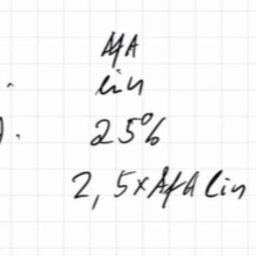 AfA
lin
. 25%
2,5xAfA lin